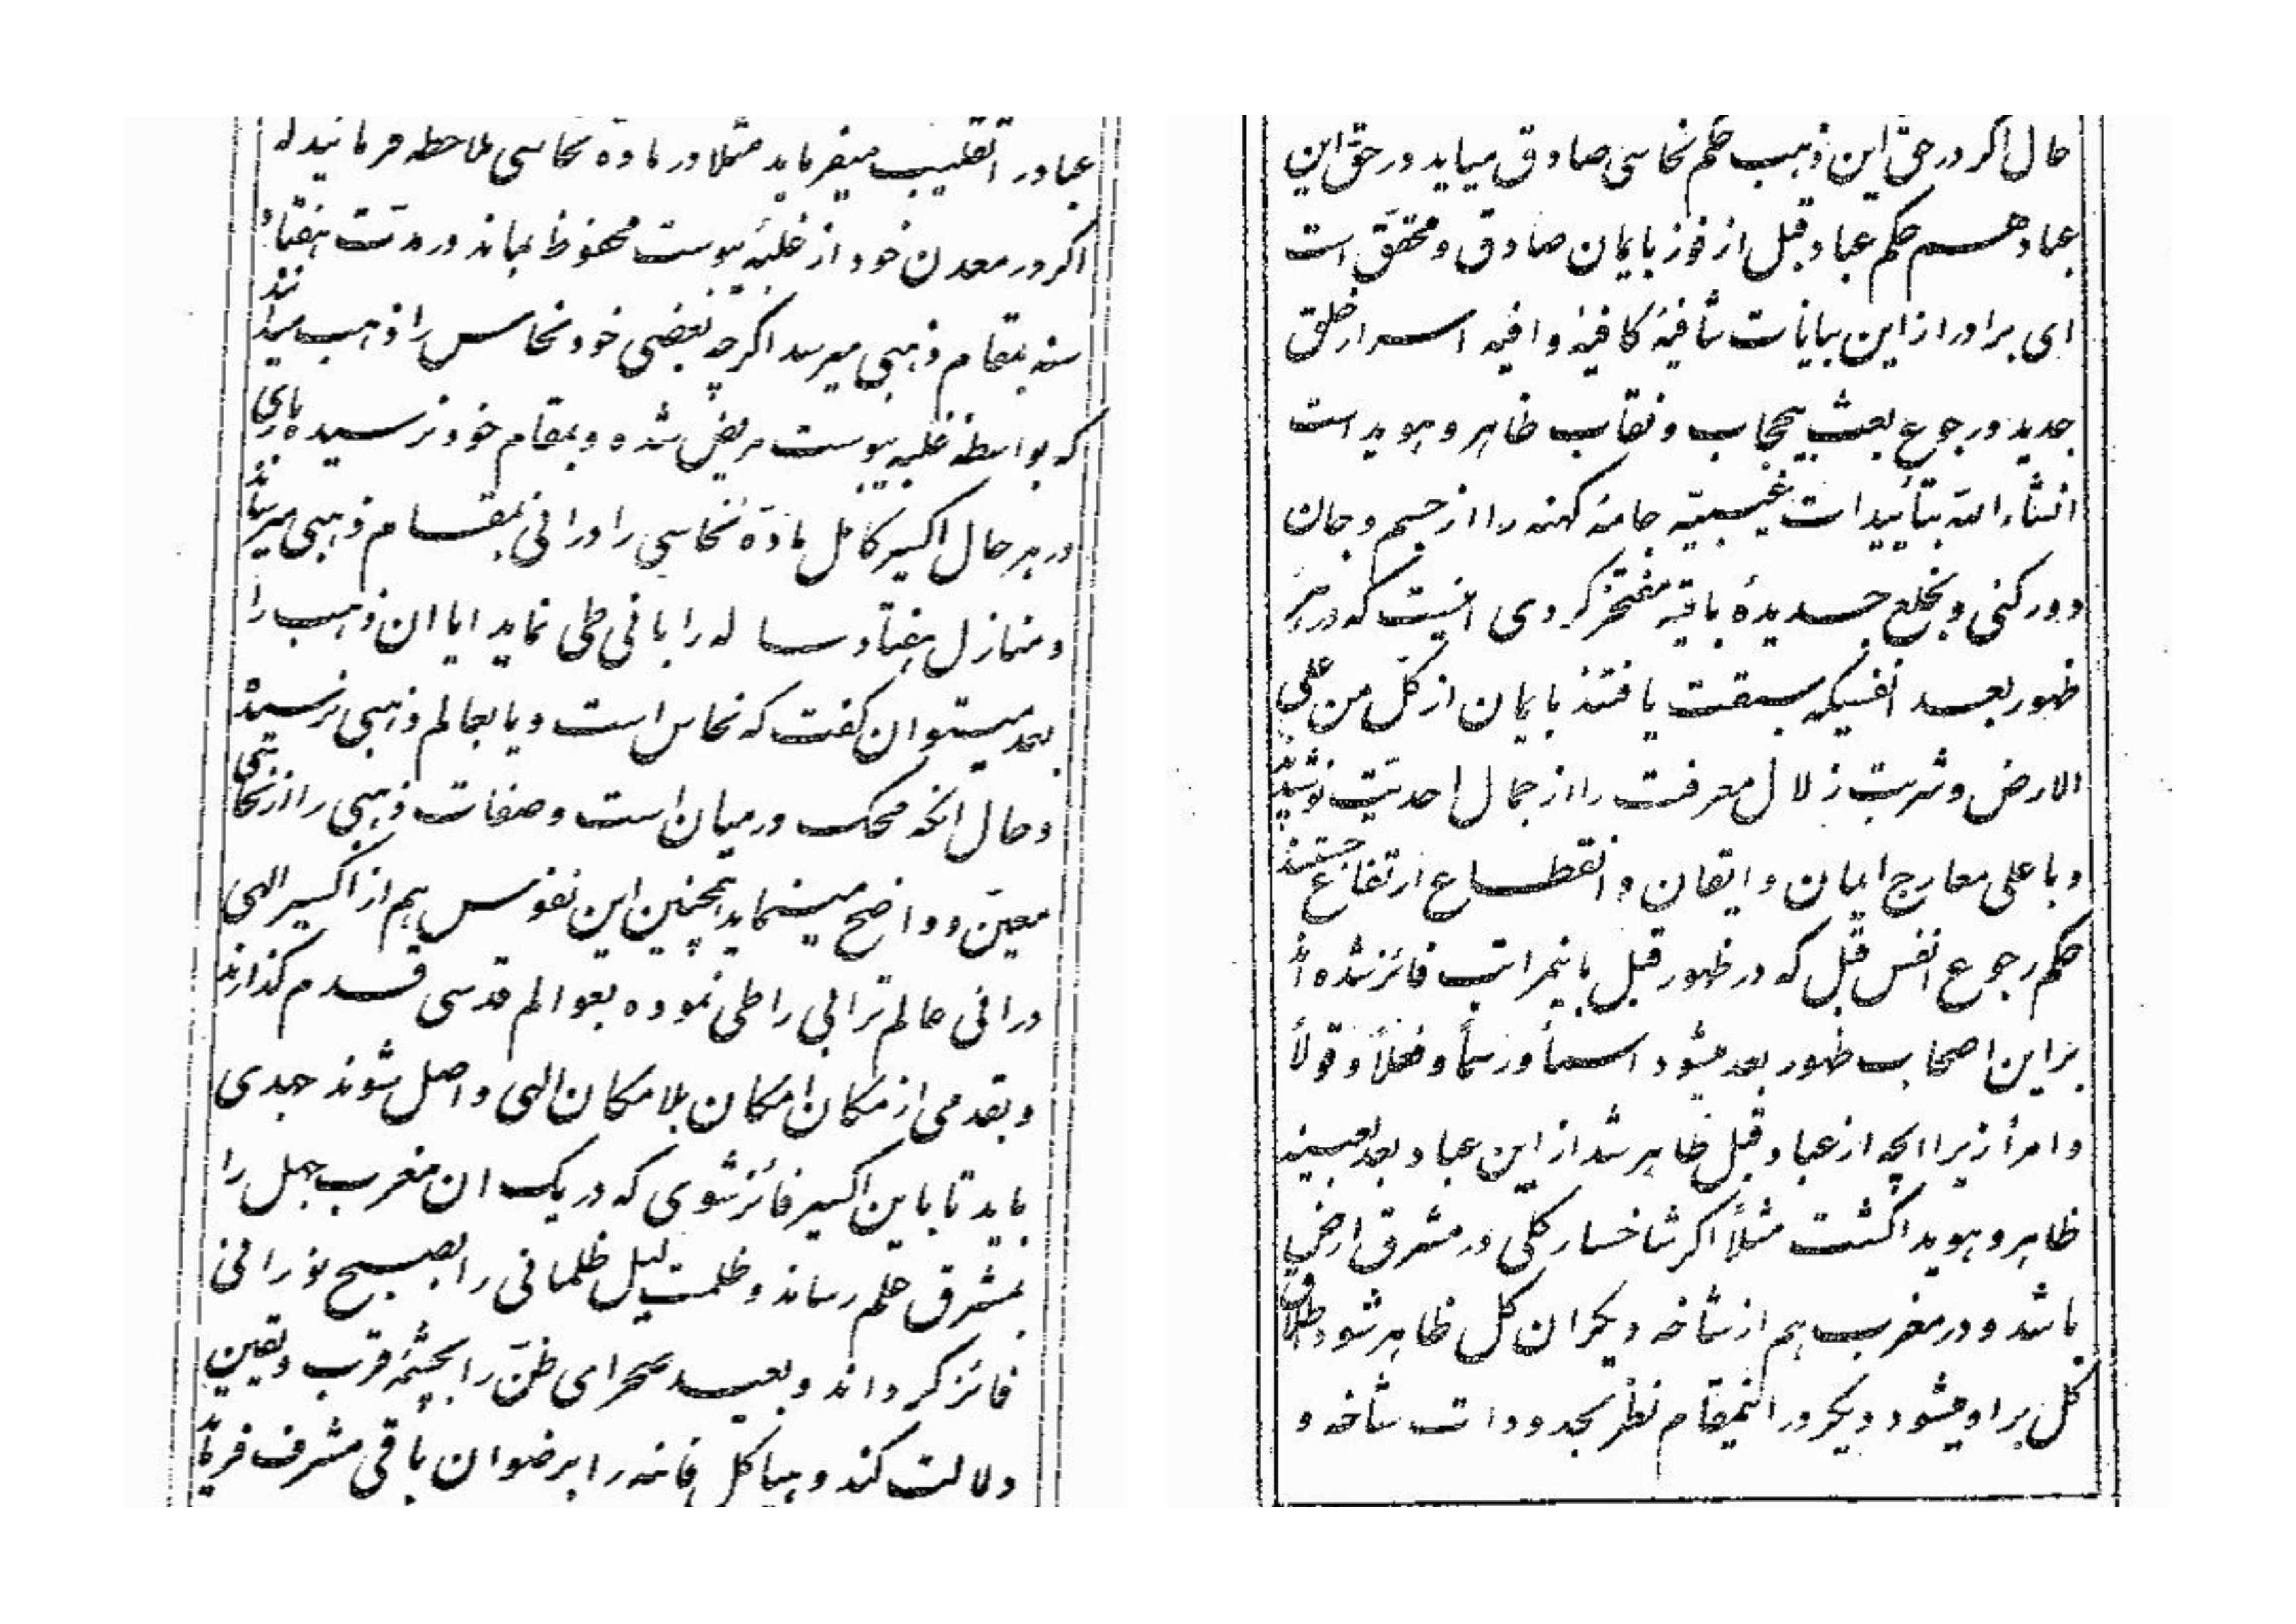 عباد را تقلیب میفرماید مثلا در ماده نحاسی ملاحظه فرمائید که
اگر در معدن خود از غلبهٔ یبوست محفوظ بماند در مدّت هفتاد
سنه بمقام ذهبی میرسد اگرچه بعضی خود نحاس را ذهب میدانند
که بواسطه غلبه یبوست مریض شده و بمقام خود نرسیده باری
در هر حال اکسیر کامل مادّه نحاسی را در انی بمقام ذهبی میرساند
و منازل هفتاد ساله را بانی طی نماید ایا ان ذهب را
بعد میتوان گفت که نحاس است و یا بعالم ذهبی نرسیده
و حال انکه محک در میان است و صفات ذهبی را از نحاسی
معیّن و واضح مینماید همچنین این نفوس هم از اکسیر الهی
در انی عالم ترابی را طی نموده بعوالم قدسی قدم گذارند
و بقدمی از مکان امکان بلامکان الهی واصل شوند جهدی
باید تا باین اکسیر فائز شوی که در یک ان مغرب جهل را
بمشرق علم رساند و ظلمت لیل ظلمانی را بصبح نورانی
فائز گرداند و بعید صحرای ظنّ را بچشمهٔ قرب و یقین
دلالت کند و هیاکل فانیه را برضوان باقی مشرف فرماید
حال اگر در حقّ این ذهب حکم نحاسی صادق میاید در حقّ این
عباد هم حکم عباد قبل از فوز بایمان صادق و محقّق است
ای برادر از این بیانات شافیهٔ کافیهٔ وافیه اسرار خلق
جدید و رجوع بعث بیحجاب و نقاب ظاهر و هویداست
انشاءالله بتأییدات غیبیّه جامهٔ کهنه را از جسم و جان
دور کنی و بخلع جدیدهٔ باقیّه مفتخر گردی اینست که در هر
ظهور بعد انفسیکه سبقت یافتند بایمان از کلّ من علی
الارض و شربت زلال معرفت را از جمال احدیّت نوشیدند
و باعلی معارج ایمان و ایقان و انقطاع ارتفاع جستند
حکم رجوع انفس قبل که در ظهور قبل باینمراتب فائز شده اند
بر این اصحاب ظهور بعد میشود اسماً و رسماً و فعلاً و قولاً
و امراً زیرا انچه از عباد قبل ظاهر شد از این عباد بعد بعینه
ظاهر و هویدا گشت مثلاً اگر شاخسار گلی در مشرق ارض
باشد و در مغرب هم از شاخه دیگر ان گل ظاهر شود اطلاق
گل بر او میشود دیگر در اینمقام نظر بحدودات شاخه و